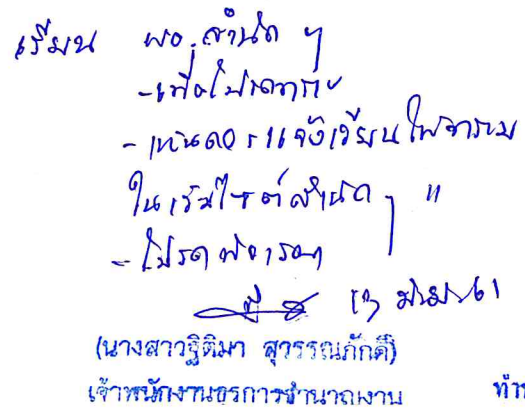 เรียน ผอ.สำนัก ฯ
- เพื่อโปรดทราบ
- เห็นควรแจ้งเวียนให้ทราบ
ในเว็บไซต์สำนัก ฯ
- โปรดพิจารณา
13 61
(นางสาวฐิติมา สุวรรณภักดี)
เจ้าพนักงานธุรการชำนาญงาน